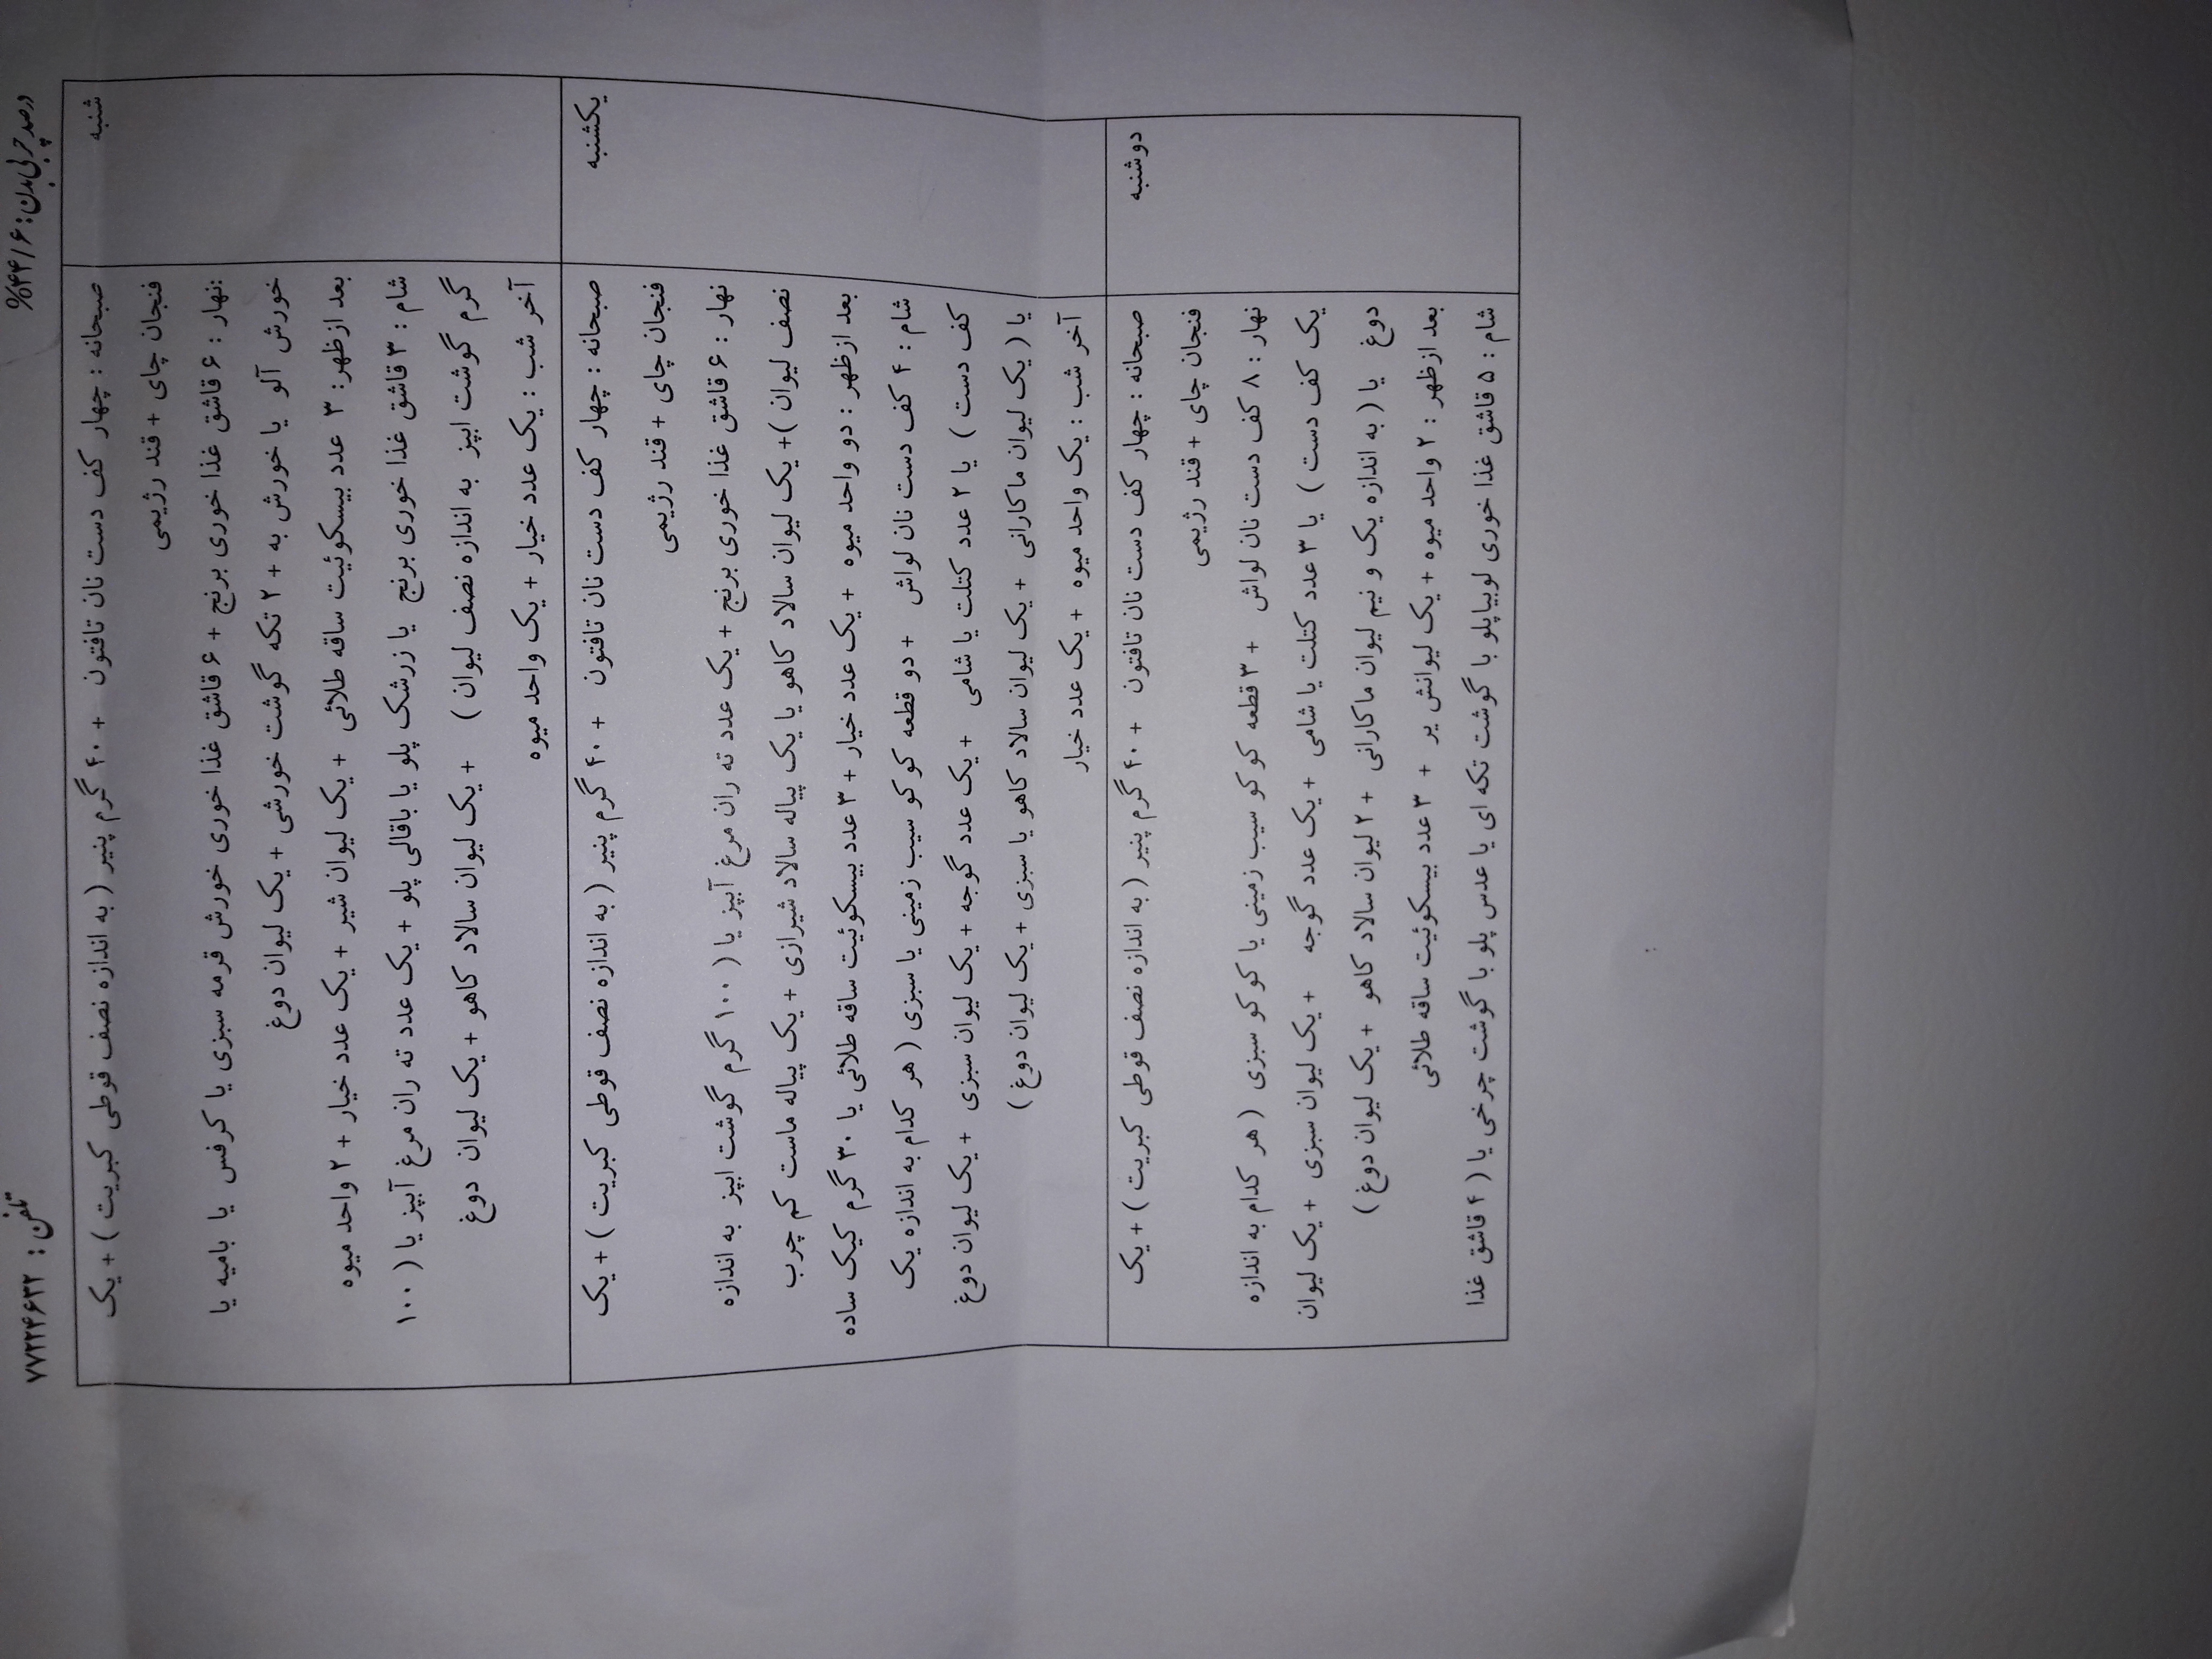 درصد چربی بدن: ۳۴/۶%
تلفن: ۷۷۲۲۴۶۳۲
شنبه
صبحانه : چهار کف دست نان تافتون + ۴۰ گرم پنیر ( به اندازه نصف قوطی کبریت ) + یک
فنجان چای + قند رژیمی
نهار: ۶ قاشق غذا خوری برنج + ۶ قاشق غذا خوری خورش قرمه سبزی یا کرفس یا بامیه یا
خورش آلو یا خورش به + ۲ تکه گوشت خورشی + یک لیوان دوغ
بعد ازظهر: ۳ عدد بیسکوئیت ساقه طلائی + یک لیوان شیر + یک عدد خیار + ۲ واحد میوه
شام : ۳ قاشق غذا خوری برنج یا زرشک پلو یا باقالی پلو + یک عدد ته ران مرغ آبپز یا ( ۱۰۰
گرم گوشت ابپز به اندازه نصف لیوان ) + یک لیوان سالاد کاهو + یک لیوان دوغ
آخر شب : یک عدد خیار + یک واحد میوه
یکشنبه
صبحانه : چهار کف دست نان تافتون + ۴۰ گرم پنیر ( به اندازه نصف قوطی کبریت ) + یک
فنجان چای + قند رژیمی
نهار : ۶ قاشق غذا خوری برنج + یک عدد ته ران مرغ آبپز یا ( ۱۰۰ گرم گوشت ابپز به اندازه
نصف لیوان )+ یک لیوان سالاد کاهو یا یک پیاله سالاد شیرازی + یک پیاله ماست کم چرب
بعد ازظهر : دو واحد میوه + یک عدد خیار + ۳ عدد بیسکوئیت ساقه طلائی یا ۳۰ گرم کیک ساده
شام : ۴ کف دست نان لواش + دو قطعه کو کو سیب زمینی یا سبزی ( هر کدام به اندازه یک
کف دست ) یا ۲ عدد کتلت یا شامی + یک عدد گوجه + یک لیوان سبزی + یک لیوان دوغ
یا ( یک لیوان ماکارانی + یک لیوان سالاد کاهو یا سبزی + یک لیوان دوغ )
آخر شب : یک واحد میوه + یک عدد خیار
دوشنبه
صبحانه : چهار کف دست نان تافتون + ۴۰ گرم پنیر ( به اندازه نصف قوطی کبریت ) + یک
فنجان چای + قند رژیمی
نهار : ۸ کف دست نان لواش + ۳ قطعه کو کو سیب زمینی یا کو کو سبزی ( هر کدام به اندازه
یک کف دست ) یا ۳ عدد کتلت یا شامی + یک عدد گوجه + یک لیوان سبزی + یک لیوان
دوغ یا ( به اندازه یک و نیم لیوان ماکارانی + ۲ لیوان سالاد کاهو + یک لیوان دوغ )
بعد ازظهر : ۲ واحد میوه + یک لیوانش یر + ۳ عدد بیسکوئیت ساقه طلائی
شام : ۵ قاشق غذا خوری لوبیاپلو با گوشت تکه ای یا عدس پلو با گوشت چرخی یا ( ۴ قاشق غذا